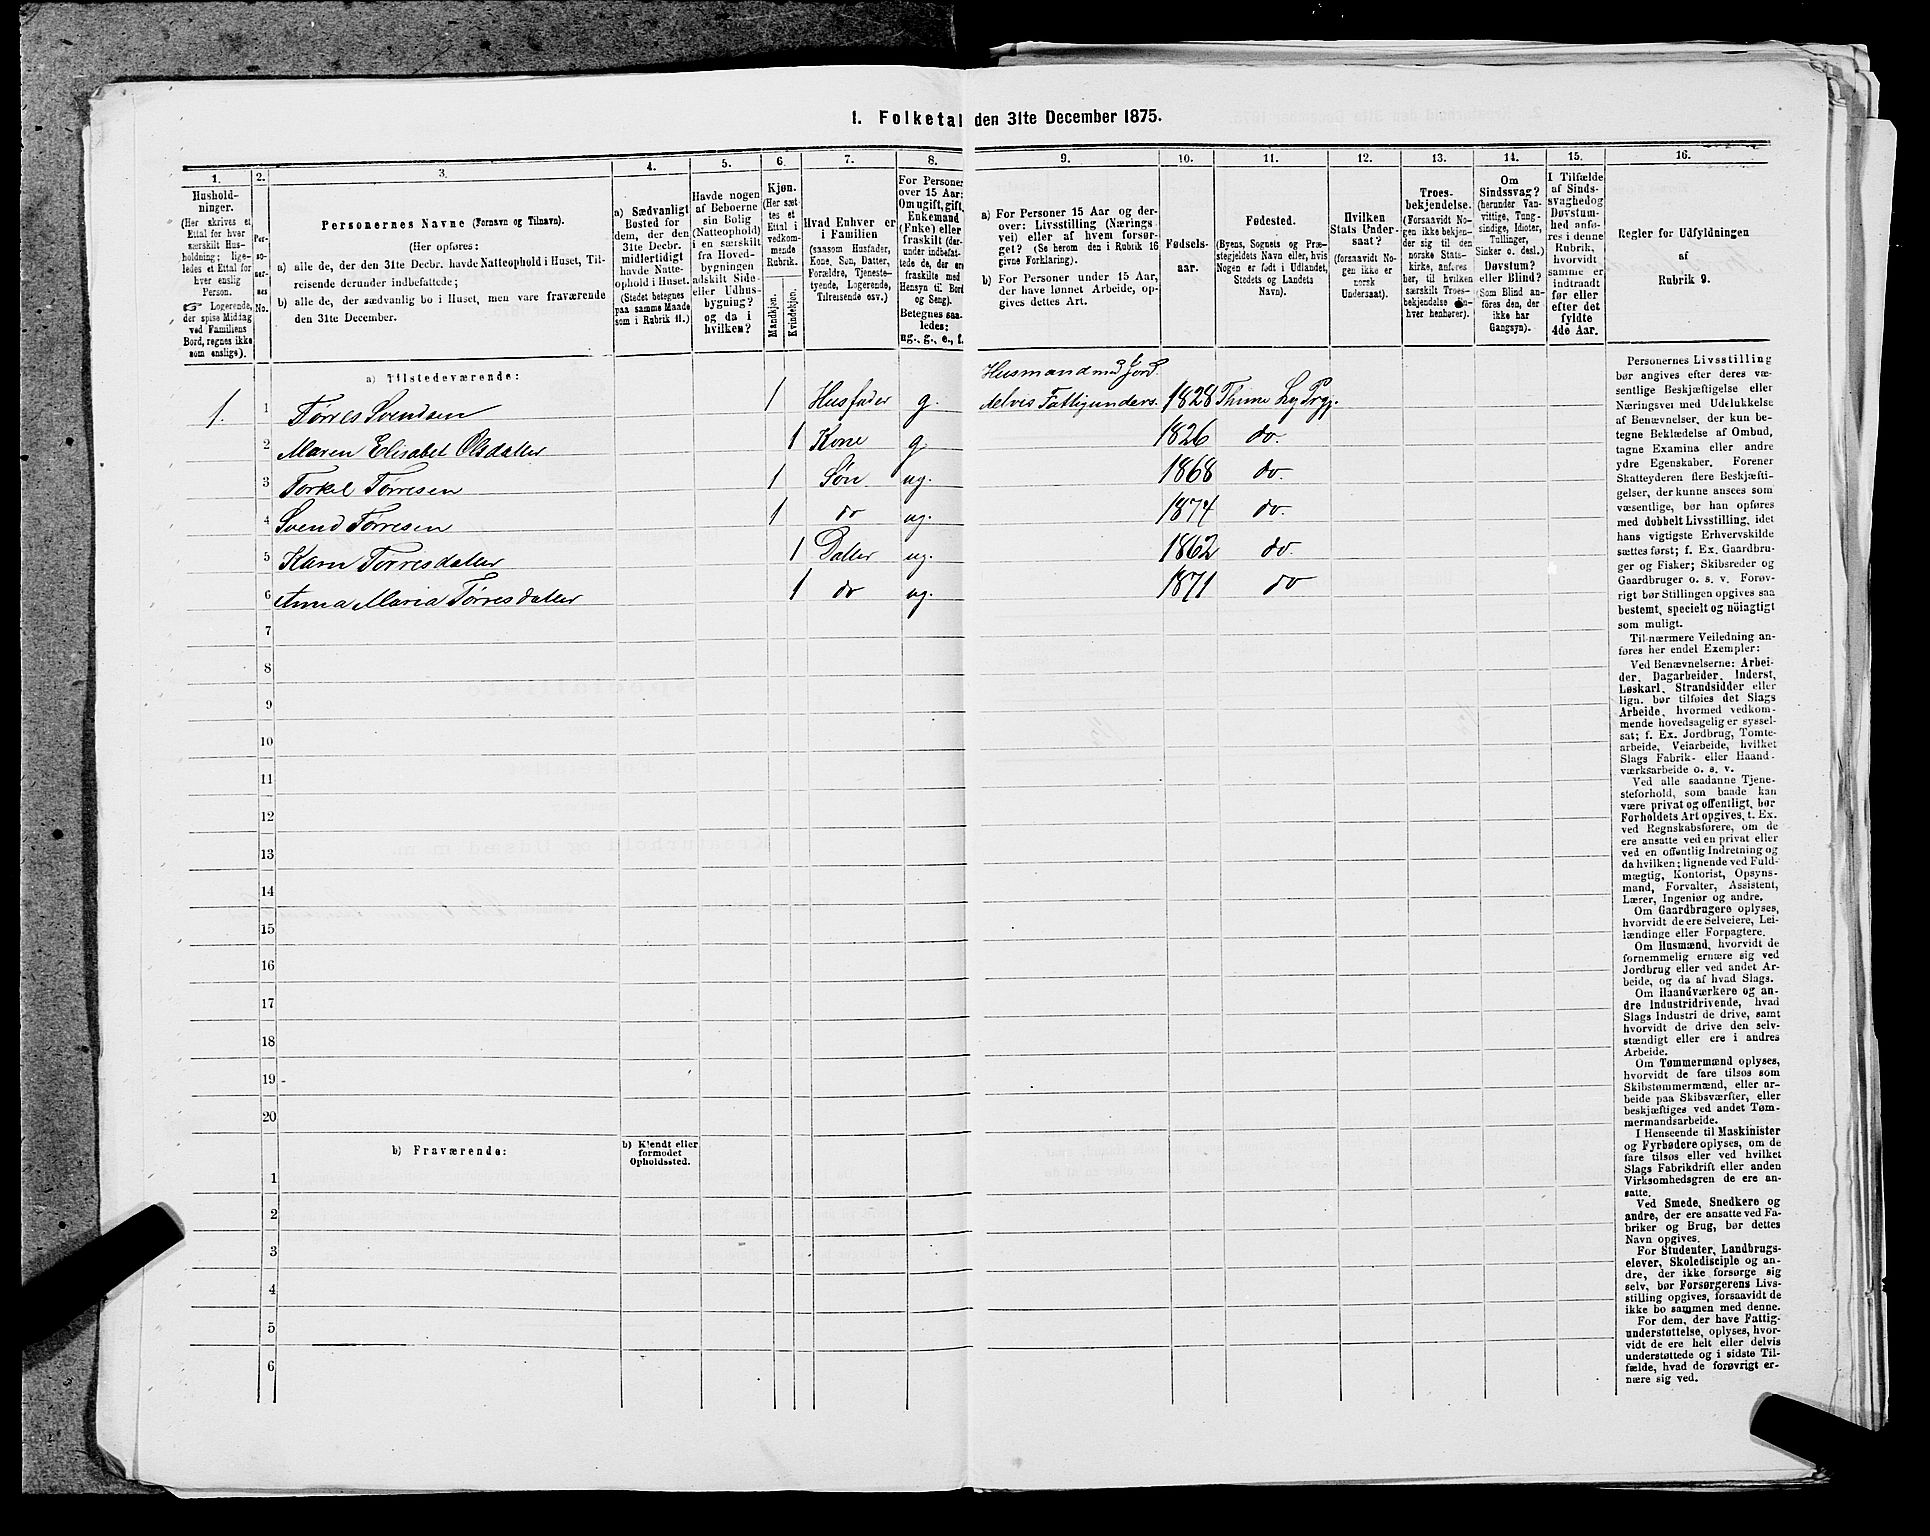 1. Folketal den 31te December 1875.
1.
Hushold-
ninger.
(Her skrives et
Ettal for hver
særskilt Hus-
holdning; lige-
ledes et Ettal for
hver enslig
Person.
☞ Logerende,
der spise Middag
ved Familiens
Bord, regnes ikke
som enslige).
2.
Per-
so-
ner-
nes
No.
3.
Personernes Navne (Fornavn og Tilnavn).
(Her opføres:
a) alle de, der den 31te Decbr. havde Natteophold i Huset, Til-
reisende derunder indbefattede;
b) alle de, der sædvanlig bo i Huset, men vare fraværende
den 31te December.
4.
a) Sædvanligt
Bosted for
dem, der den
31te Decbr.
midlertidigt
havde Natte-
ophold i Huset.
(Stedet betegnes
paa samme Maade
som i Rubrik 11.)
5.
Havde nogen
af Beboerne
sin Bolig
(Natteophold)
i en særskilt
fra Hoved-
bygningen
adskilt Side-
eller Udhus-
bygning?
og da i
hvilken?
6.
Kjøn.
(Her sæt-
tes et
Ettal i
vedkom-
mende
Rubrik.
Mandkjøn.
Kvindekjøn.
7.
Hvad Enhver er
i Familien
(saasom Husfader,
Kone, Søn, Datter,
Forældre, Tjeneste-
tyende, Logerende,
Tilreisende osv.)
8.
For Personer
over 15 Aar:
Om ugift, gift,
Enkemand
(Enke) eller
fraskilt (der-
under indbefat-
tede de, der ere
fraskilte med
Hensyn til Bord
og Seng).
Betegnes saa-
ledes:
ug., g., e., f.
9.
a) For Personer 15 Aar og der-
over: Livsstilling (Nærings-
vei) eller af hvem forsør-
get? (Se herom den i Rubrik 16
givne Forklaring).
b) For Personer under 15 Aar,
der have lønnet Arbeide, op-
gives dettes Art.
10.
Fødsels-
aar.
11.
Fødested.
(Byens, Sognets og Præ-
stegjeldets Navn eller, hvis
Nogen er født i Udlandet,
Stedets og Landets
Navn).
12.
Hvilken
Stats Under-
saat?
(forsaavidt No-
gen ikke er
norsk
Undersaat).
13.
Troes-
bekjendelse.
(Forsaavidt No-
gen ikke bekjen-
der sig til den
norske Stats-
kirke, anføres
her, til hvilken
særskilt Troes-
bekjendelse En-
hver henhører).
14.
Om
Sindssvag?
(herunder Van-
vittige, Tung-
sindige, Idioter,
Tullinger,
Sinker o. desl.)
Døvstum?
eller Blind?
(Som Blind an-
føres den, der
ikke har
Gangsyn).
15.
I Tilfælde
af Sinds-
svaghed og
Døvstum-
hed anfø-
res i denne
Rubrik,
hvorvidt
samme er
indtraadt
før eller
efter det
fyldte
4de Aar.
16.
Regler for Udfyldningen
af
Rubrik 9.
a) Tilstedeværende:
Husmand med Jord
1. 1 Tørres Svendsen 1 Husfader g. delvis Fattigunders. 1828 Thime Ly Prgj.
2 Maren Elisabet Olsdatter 1 Kone g 1826 do.
3 Torkel Tørresen 1 Søn ug. 1868 do.
4 Svend Tørresen 1 do ug. 1874 do.
5 Karn Tørresdatter 1 Datter ug. 1862 do.
6 Anna Maria Tørresdatter 1 do ug. 1871 do
7
8
9
10
11
12
13
14
15
16
17
18
19
20
b) Fraværende:
b) Kjendt eller
formodet
Opholdssted.
1
2
3
4
5
6
Personernes Livsstilling
bør angives efter deres væ-
sentlige Beskjæftigelse eller
Næringsvei med Udelukkelse
af Benævnelser, der kun be-
tegne Beklædelse af Ombud,
tagne Examina eller andre
ydre Egenskaber. Forener
Skatteyderen flere Beskjæfti-
gelser, der kunne ansees som
væsentlige, bør han opføres
med dobbelt Livsstilling, idet
hans vigtigste Erhvervskilde
sættes først; f. Ex. Gaardbru-
ger og Fisker; Skibsreder og
Gaardbruger o. s. v. Forøv-
rigt bør Stillingen opgives saa
bestemt, specielt og nöiagtigt
som muligt.
Til nærmere Veiledning an-
føres her endel Exempler:
Ved Benævnelserne: Arbei-
der, Dagarbeider, Inderst,
Løskarl, Strandsidder eller
lign. bør tilføies det Slags
Arbeide, hvormed vedkom-
mende hovedsagelig er syssel-
sat; f. Ex. Jordbrug, Tomte-
arbeide, Veiarbeide, hvilket
Slags Fabrik- eller Haand-
værksarbeide o. s. v.
Ved alle saadanne Tjene-
steforhold, som baade kan
være privat og offentligt, bør
Forholdets Art opgives, t. Ex.
ved Regnskabsførere, om de
ere ansatte ved en privat eller
ved en offentlig Indretning og
da hvilken; lignende ved Fuld-
mægtig, Kontorist, Opsyns-
mand, Forvalter, Assistent,
Lærer, Ingeniør og andre.
Om Gaardbrugere oplyses,
hvorvidt de ere Selveiere, Lei-
lændinge eller Forpagtere.
Om Husmænd, hvorvidt de
fornemmelig ernære sig ved
Jordbrug eller ved andet Ar-
beide, og da af hvad Slags.
Om Haandværkere og an-
dre Industridrivende, hvad
Slags Industri de drive, samt
hvorvidt de drive den selv-
stændigt eller ere i andres
Arbeide.
Om Tømmermænd oplyses,
hvorvidt de fare tilsøs som
Skibstømmermænd, eller ar-
beide paa Skibsværfter, eller
beskjæftiges ved andet Tøm-
mermandsarbeide.
I Henseende til Maskinister
og Fyrbødere oplyses, om de
fare tilsøs eller ved hvilket
Slags Fabrikdrift eller anden
Virksomhedsgren de ere an-
satte.
Ved Smede, Snedkere og
andre, der ere ansatte ved Fa-
briker og Brug, bør dettes
Navn opgives.
For Studenter, Landbrugs-
elever, Skoledisciple og an-
dre, der ikke forsørge sig
selv, bør Forsørgerens Livs-
stilling opgives, forsaavidt de
ikke bo sammen med denne.
For dem, der have Fattig-
understøttelse, oplyses, hvor-
vidt de ere helt eller delvis
understøttede og i sidste Til-
fælde, hvad de forøvrigt er-
nære sig ved.